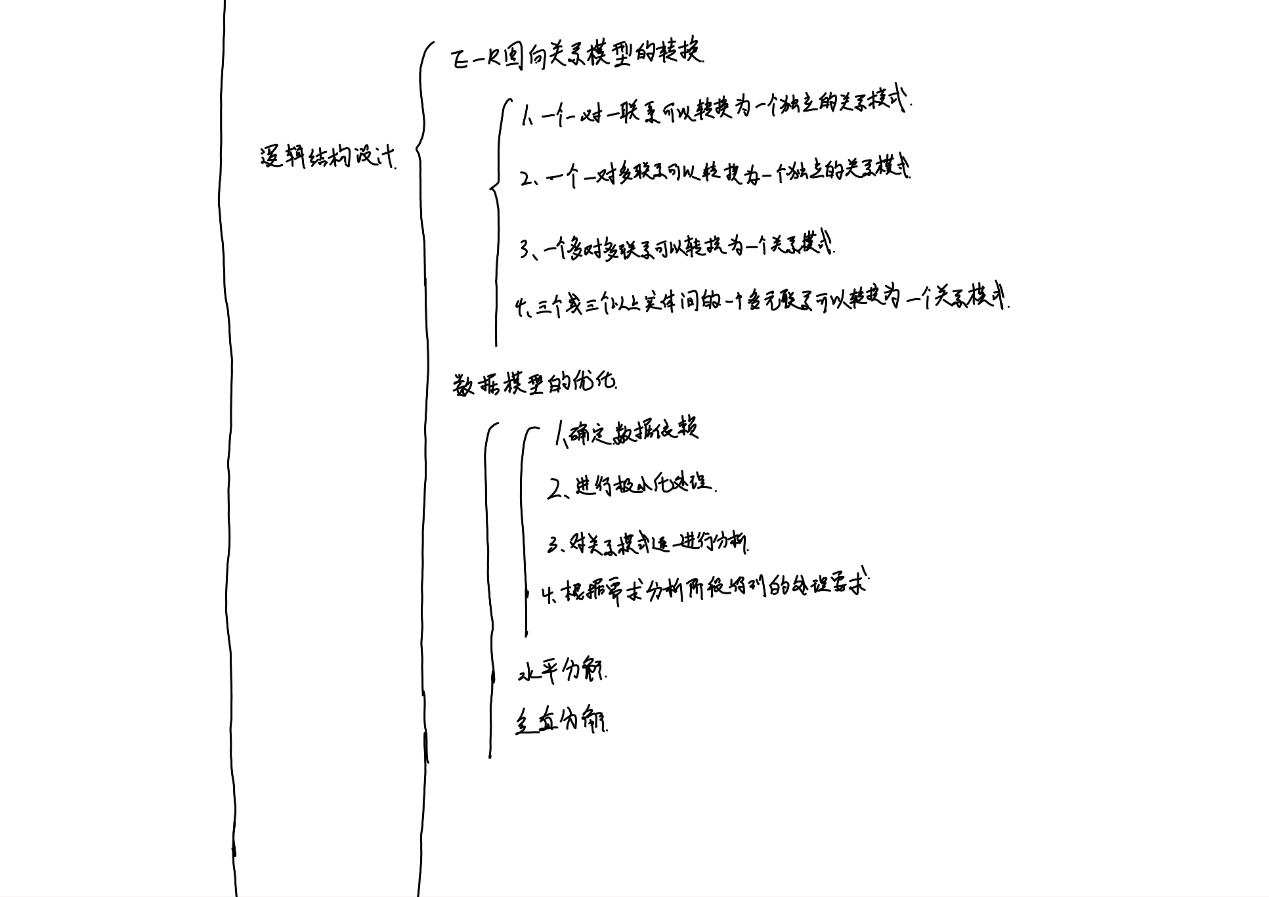 E-R图向关系模型的转换
1、一个一对一联系可以转换为一个独立的关系模式.
逻辑结构设计.
2、一个一对多联系可以转换为一个独立的关系模式
3、一个多对多联系可以转换为一个关系模式.
4、三个或三个以上实体间的一个多元联系可以转换为一个关系模式.
数据模型的优化.
1、确定数据依赖
2、进行极小化处理.
3、对关系模式逐一进行分析.
4、根据需求分析阶段得到的处理要求.
水平分解.
垂直分解.